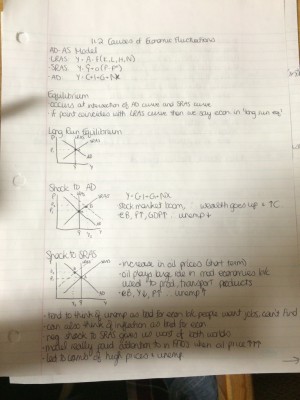 11.2 Causes of Economic Fluctuations
AD-AS Model
LRAS Y=A·F(K,L,H,N)
SRAS
AD Y=C+I+G+NX
Equilibrium
occurs at intersection of AD curve and SRAS curve
if point coincides with LRAS curve then we say econ in "long run eq"
Long Run Equilibrium
LRAS
SRAS
AD
Shock to AD
Y=C+I+G+NX
LRAS
SRAS
- stock market boom, ∴ wealth goes up = ↑C
unemp ↓
Shock to SRAS
LRAS
SRAS
- increase in oil prices (short term)
- oil plays large role in most economies b/c
used to prod, transport products
Y↓, P↑ ∴ unemp ↑
- tend to think of unemp as bad for econ b/c people want jobs, can't find
- can also think of inflation as bad for econ
- neg shock to SRAS gives us worst of both worlds
- model really paid attention to in 1970s when oil price ↑↑↑
- led to comb. of high prices + unemp